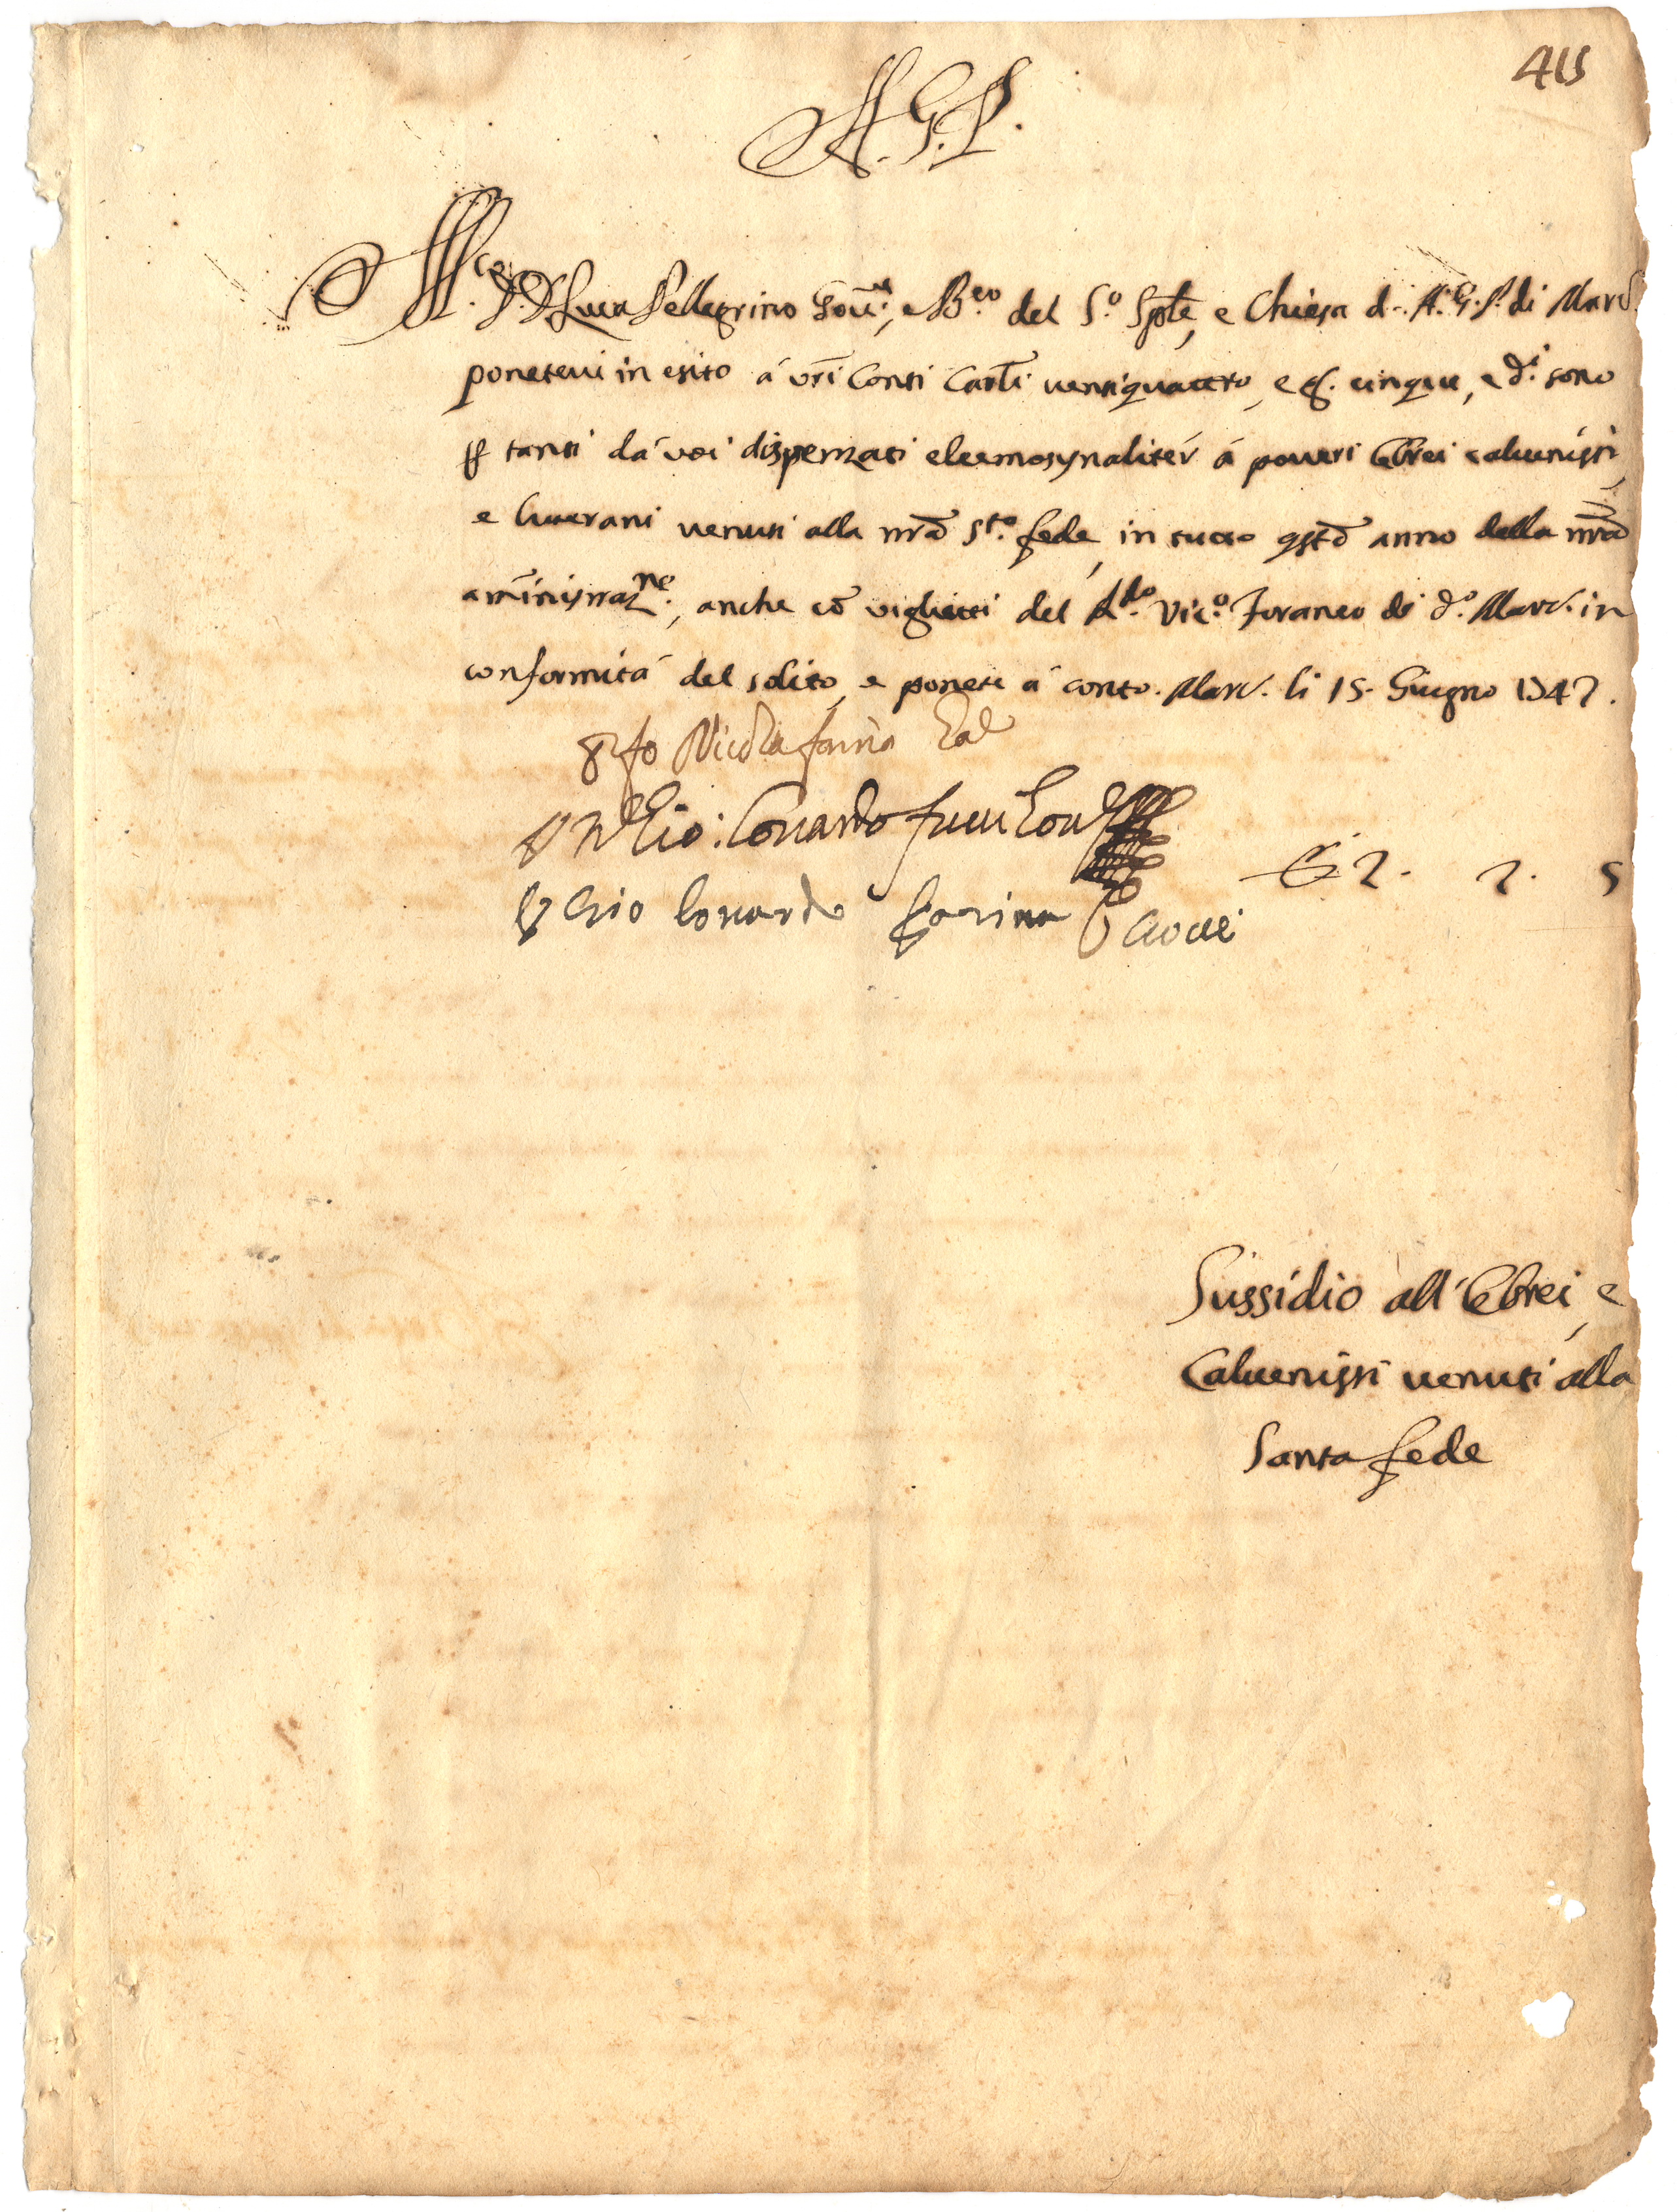 415
A. G. P.
M.co S.r D. Luca Pellegrino Gov.re, e B.co del S.o Sple, e Chiesa d. A. G. P. di Marc.
ponetevi in esito á vrī Conti Carlī ventiquattro, e g. cinque, e d.i sono
ꝑ tanti dá voi dispenzati eleemosynalitér á poveri Ebrei calvenisti,
e luterani venuti alla nrā S.ta fede, in tutto qstō anno della nrā
amīnistraz.ne, anche cō viglietti del R.do Vic.o Foraneo di d.o Marc. in
conformitá del solito, e ponete á conto. Marc. li 15. Giugno 1747.
Nicola farina
Gio: Lonardo
Gio Lonardo farina
2. 2. 5
Sussidio all' Ebrei, e
Calvenisti venuti alla
Santa fede